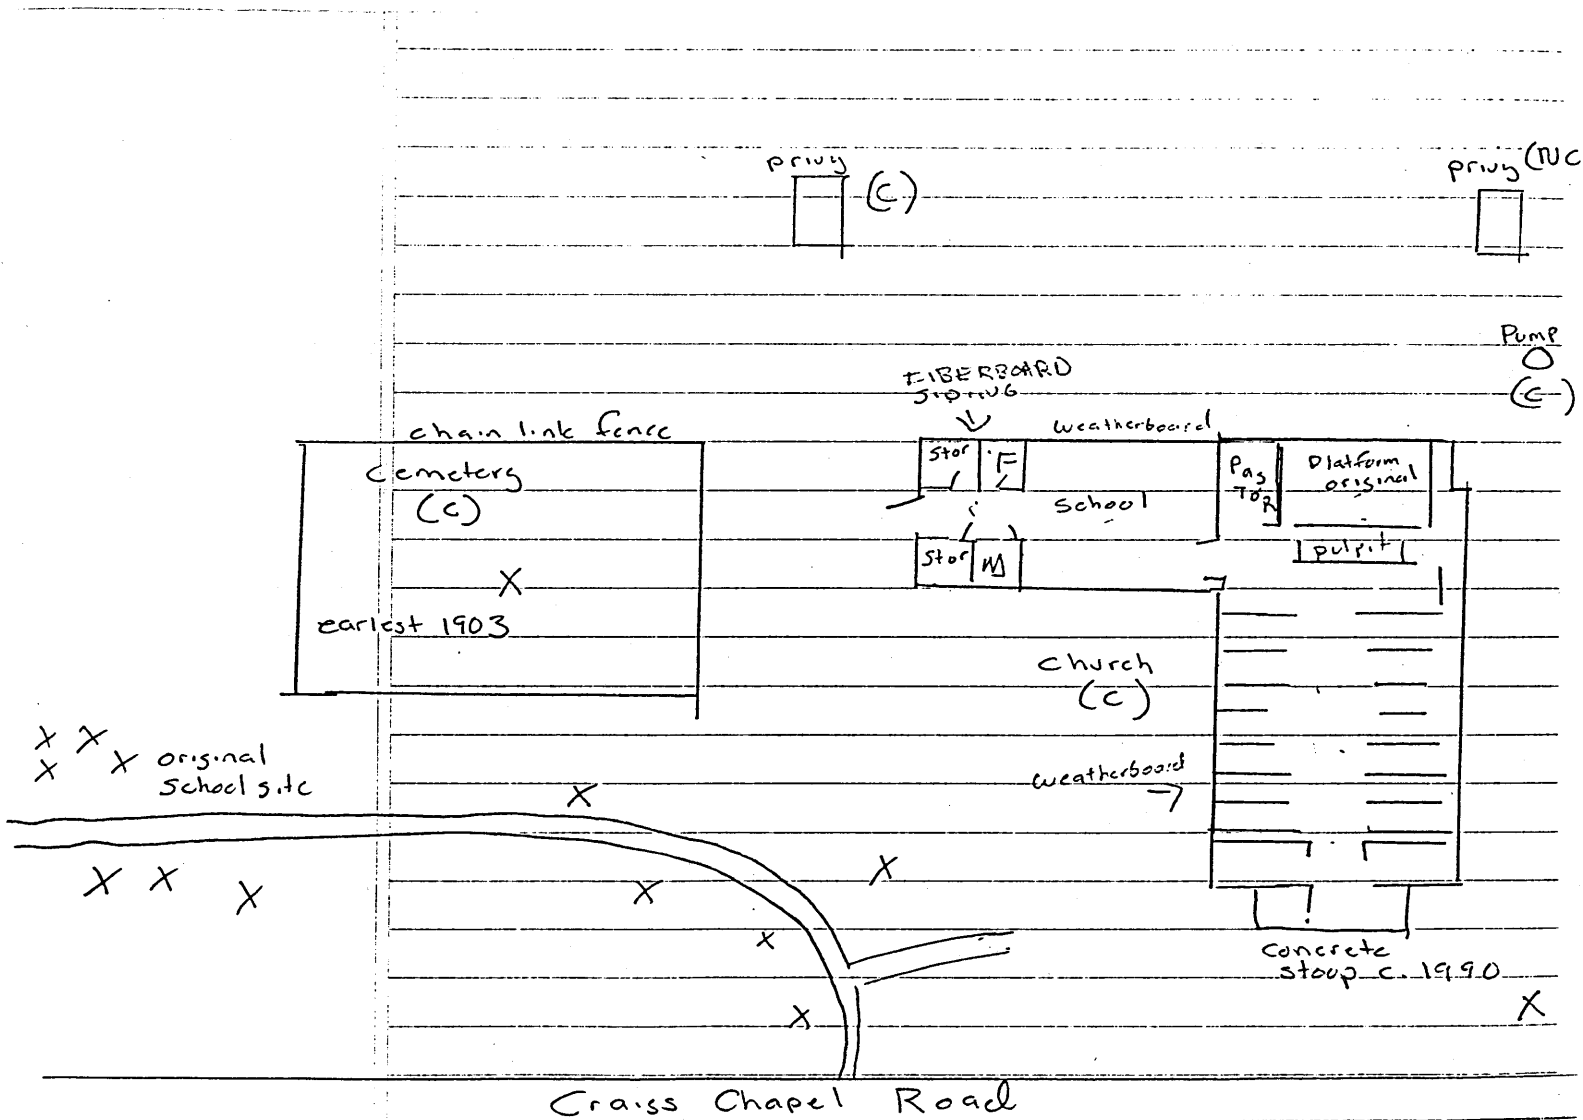 privy
(C)
privy (NC
Pump
(C)
FIBERBOARD
SIDING
chain link fence
weatherboard
cemetery
(C)
Stor
F
School
Pas
To
R
Platform
original
pulpit
Stor
M
X
earliest 1903
church
(C)
X X
X X
original
School site
weatherboard
X
X X X
X
X
X
X
concrete
stoop c. 1990
X
Craigs Chapel Road